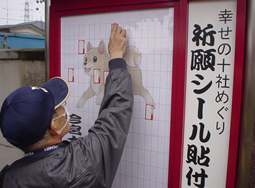 幸せの十社めぐり
祈願シール貼付